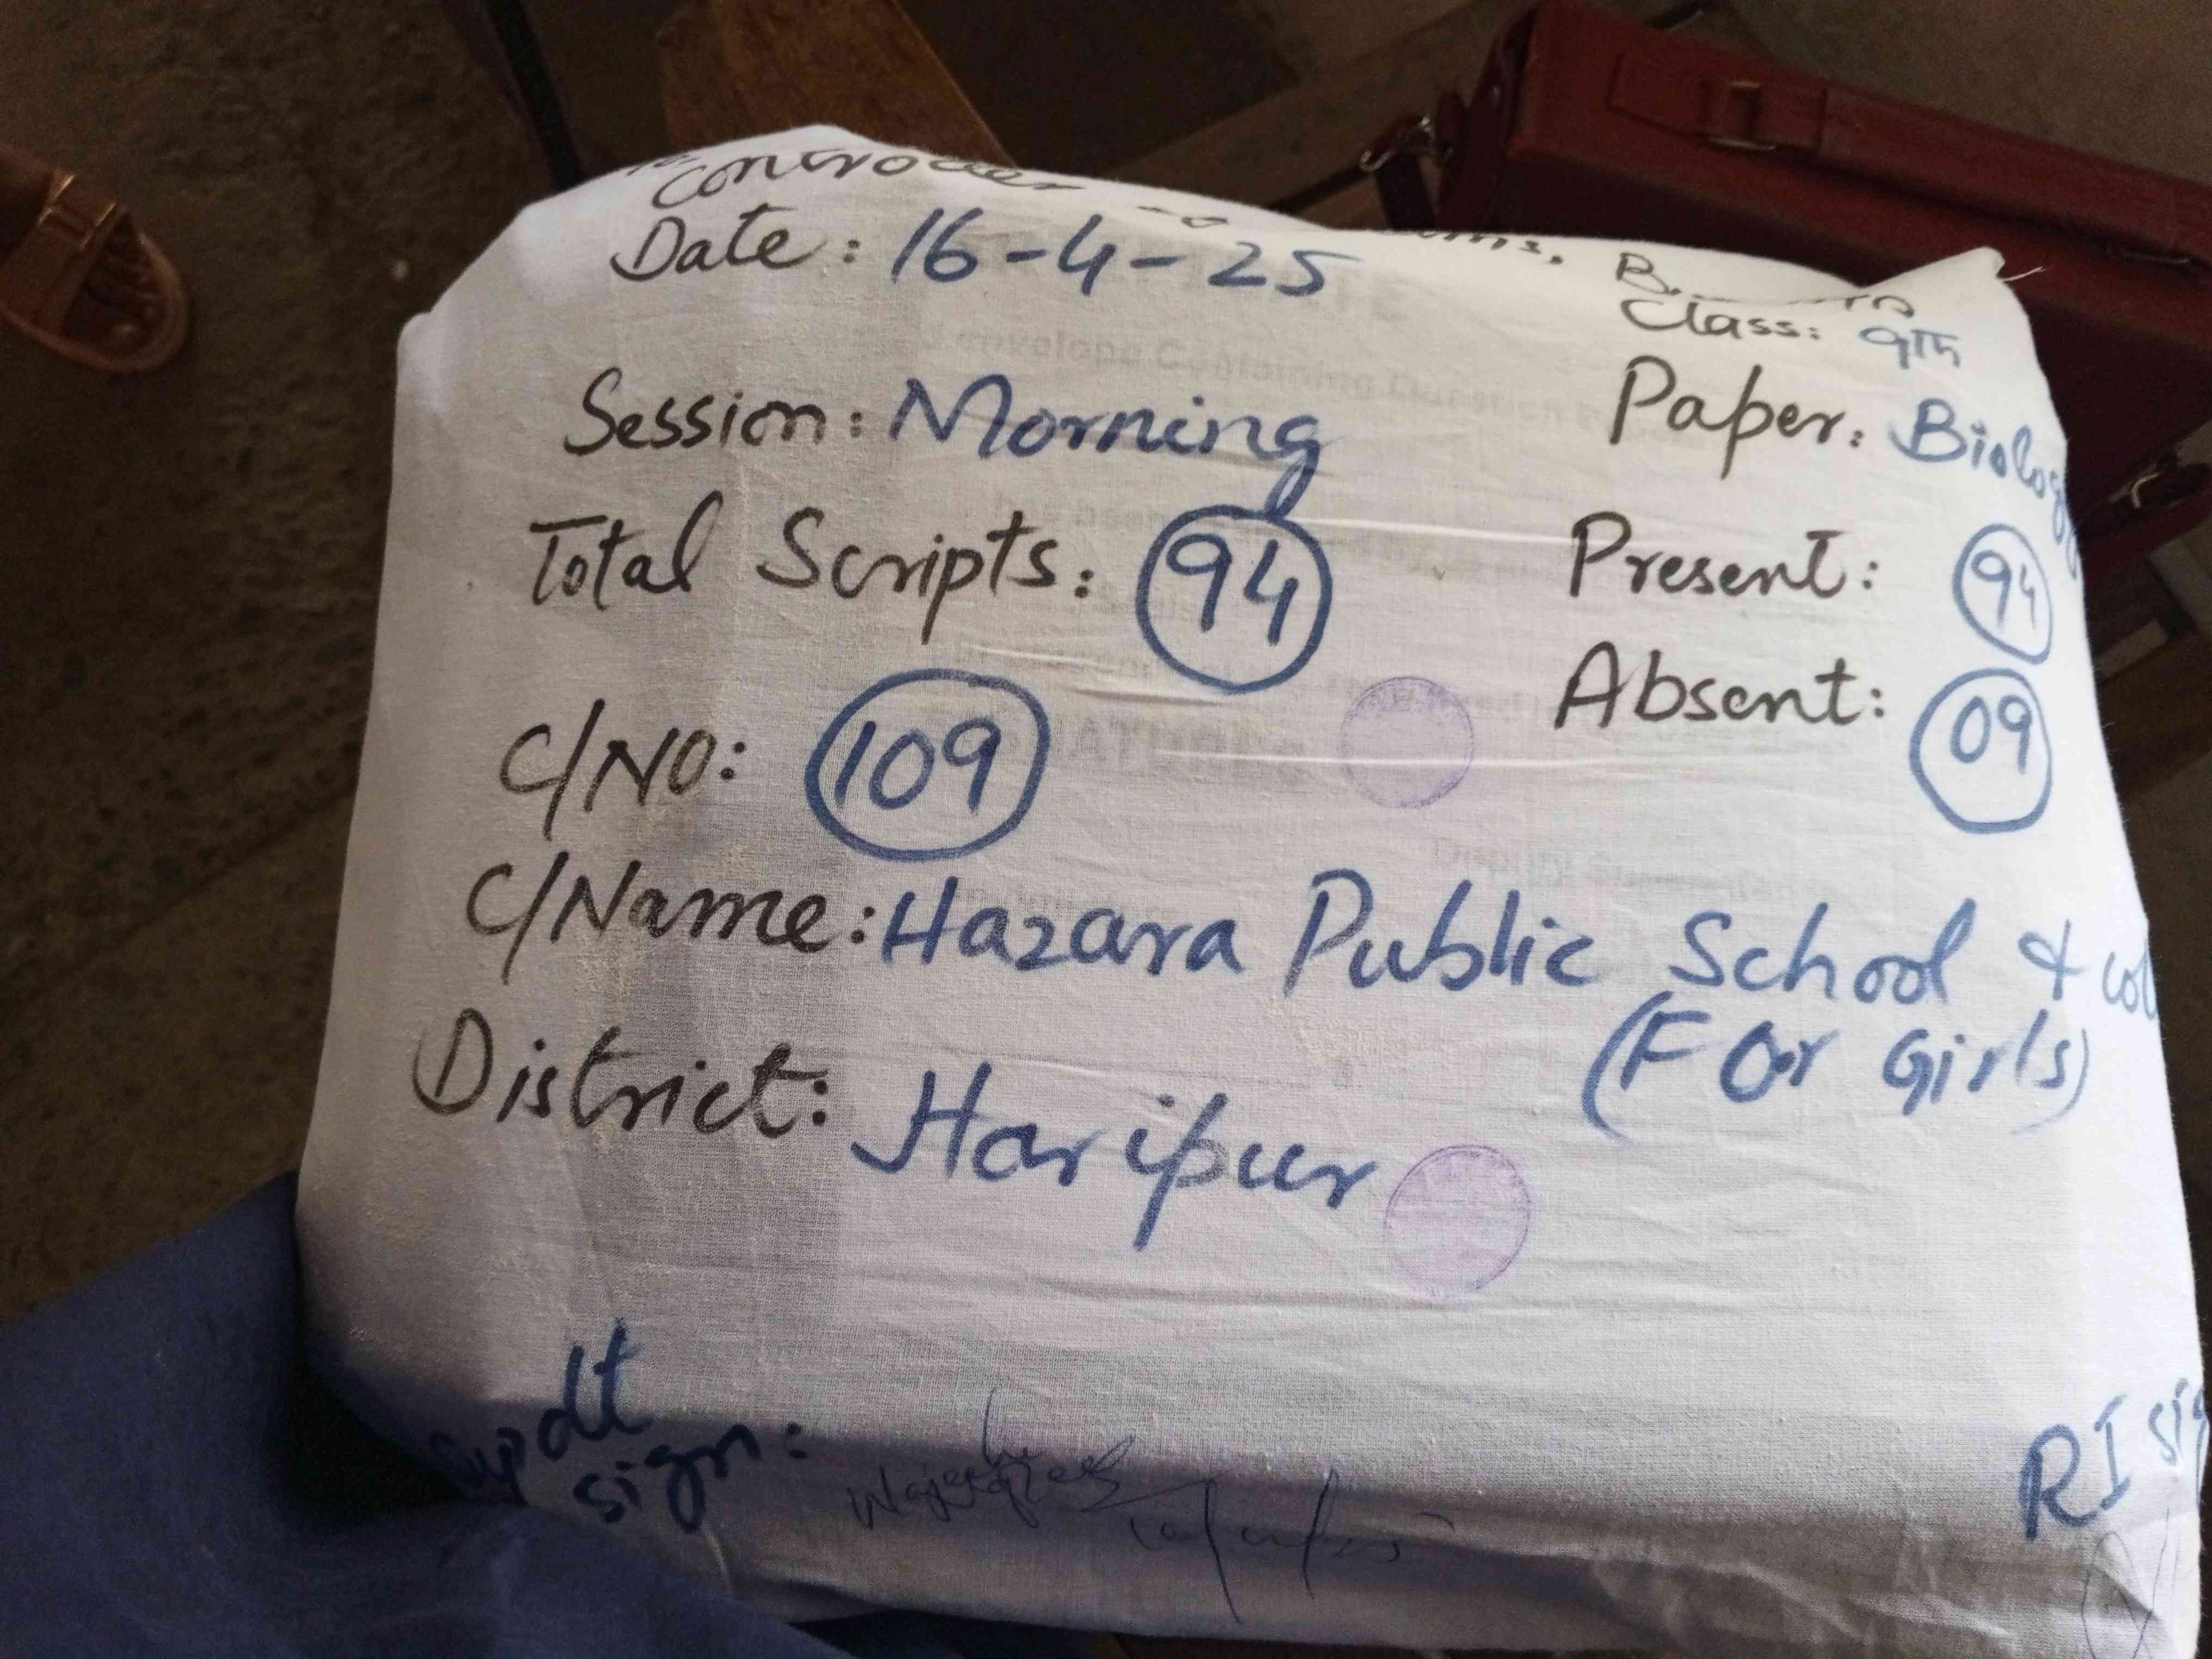 Controller
Date: 16-4-25
Class: 9Th
Session: Morning
Paper: Biology
Total Scripts: 94
Present: 94
Absent: 09
C/NO: 109
C/Name: Hazara Public School & Col
(FOr Girls)
District: Haripur
supdt
sign:
RI sig